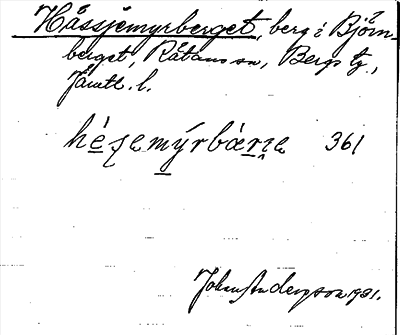 Hässjemyrberget, berg i Björn-
berget, Rätans sn, Bergs tg,
Jämtl. l.
héʃemýrbærɪe 361
Johan Anderson 1931.